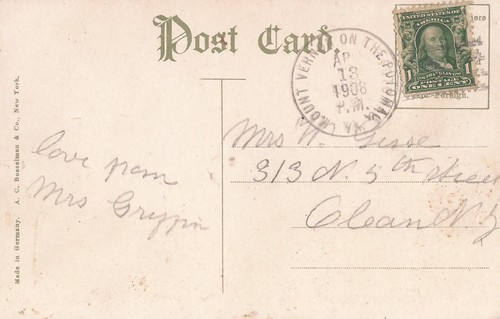 Post Card.
MOUNT VERNON ON THE POTOMAC VA.
AP
13
1908
P.M.
UNITED STATES OF AMERICA
FRANKLIN
ONE CENT
Foreign.
Love from
Mrs
Mrs W.
313 N. 5th Street
Olean N.Y
Made in Germany. A. C. Bosselman & Co., New York.